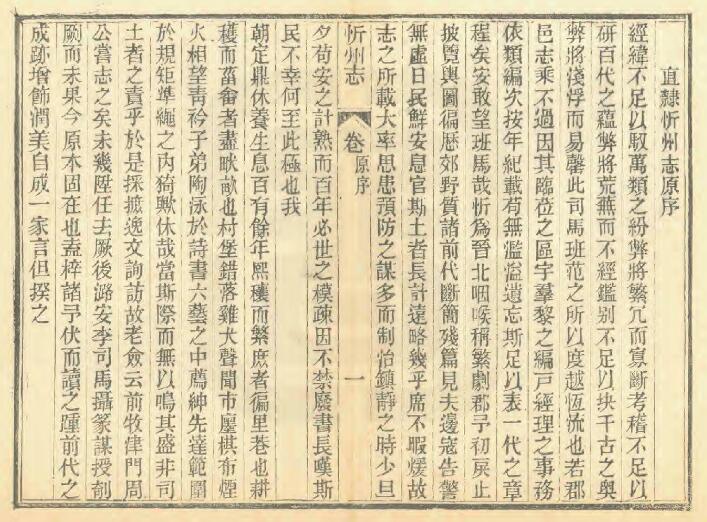 直隸忻州志原序
經緯不足以馭萬類之紛弊將繁冗而寡斷考稽不足以
研百代之蘊弊將荒蕪而不經鑑别不足以抉千古之奥
弊將淺浮而易罄此司馬班范之所以度越恆流也若郡
邑志乘不過因其臨莅之區宇羣黎之編戸經理之事務
依類編次按年紀載苟無濫溢遺忘斯足以表一代之章
程矣安敢望班馬哉忻爲晉北咽喉稱繁劇郡予初戾止
披覽輿圖徧歷郊野質諸前代斷簡殘篇見夫邊寇告警
無虛日民鮮安息官斯土者長計遠略幾乎席不暇煖故
志之所載大率思患預防之謀多而制怡鎮靜之時少旦
忻州志
卷
原序
一
夕苟安之計熟而百年必世之模疎因不禁廢書長嘆斯
民不幸何至此極也我
朝定鼎休養生息百有餘年熙穰而繁庶者徧里巷也耕
穫而菑畬者盡畎畝也村堡錯落雞犬聲聞市廛棋布煙
火相望靑衿子弟陶泳於詩書六藝之中薦紳先達範圍
於規矩準繩之内猗歟休哉當斯際而無以鳴其盛非司
土者之責乎於是採摭逸文詢訪故老僉云前牧津門周
公嘗志之矣未幾陞任去厥後潞安李司馬攝篆謀授剞
劂而未果今原本固在也盍梓諸予伏而讀之踵前代之
成跡增飾潤美自成一家言但揆之